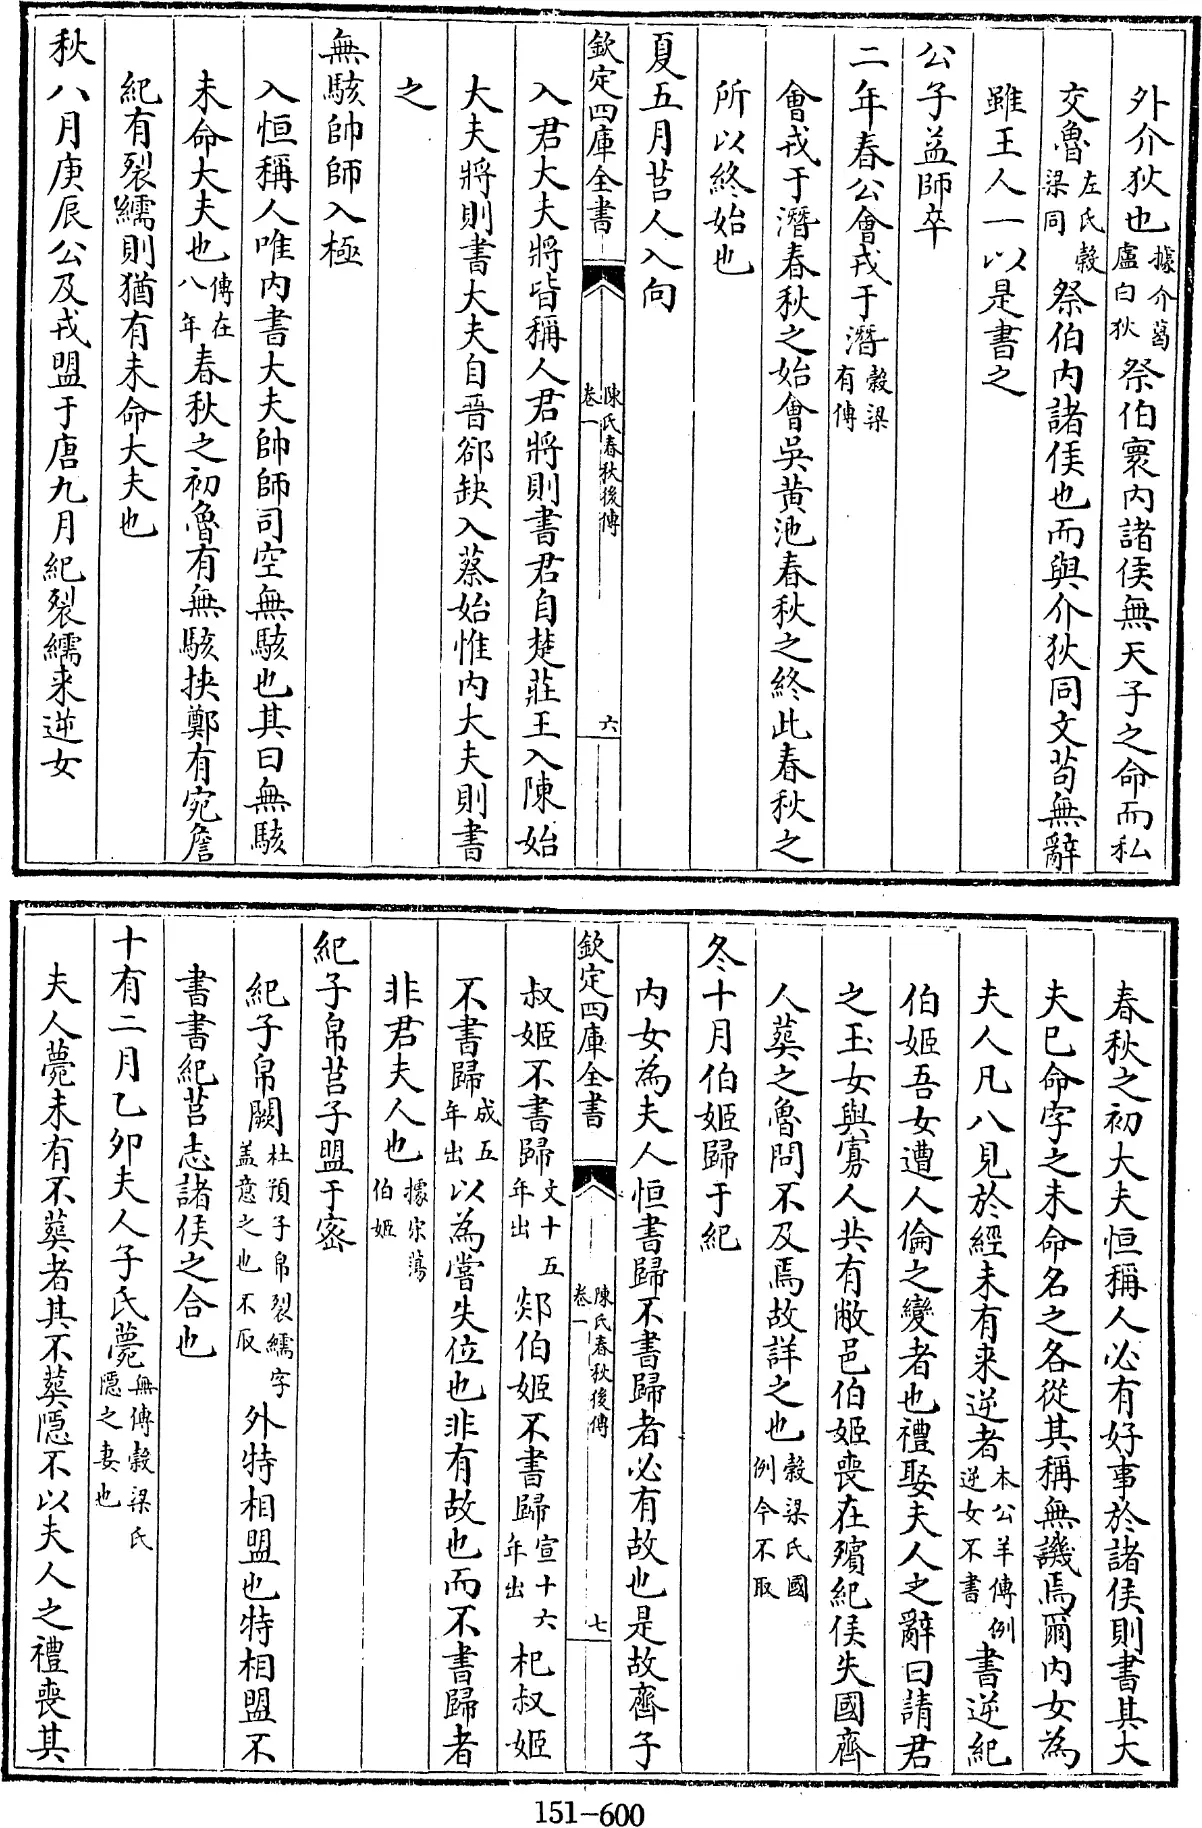 外介狄也據介葛盧白狄祭伯寰内諸侯無天子之命而私
交魯左氏穀梁同祭伯内諸侯也而與介狄同文苟無辭
雖王人一以是書之
公子益師卒
二年春公會戎于潛穀梁有傳
會戎于潛春秋之始會吳黄池春秋之終此春秋之
所以終始也
夏五月莒人入向
欽定四庫全書
陳氏春秋後傳
卷一
六
入君大夫將皆稱人君將則書君自楚莊王入陳始
大夫將則書大夫自晉郤缺入蔡始惟内大夫則書
之
無駭帥師入極
入恒稱人唯内書大夫帥師司空無駭也其曰無駭
未命大夫也傳在八年春秋之初魯有無駭挾鄭有宛詹
紀有裂繻則猶有未命大夫也
秋八月庚辰公及戎盟于唐九月紀裂繻来逆女
春秋之初大夫恒稱人必有好事於諸侯則書其大
夫已命字之未命名之各從其稱無譏焉爾内女為
夫人凡八見於經未有来逆者本公羊傳例逆女不書書逆紀
伯姬吾女遭人倫之變者也禮娶夫人之辭曰請君
之玉女與寡人共有敝邑伯姬喪在殯紀侯失國齊
人葬之魯問不及焉故詳之也穀梁氏國例今不取
冬十月伯姬歸于紀
内女為夫人恒書歸不書歸者必有故也是故齊子
欽定四庫全書
陳氏春秋後傳
卷一
七
叔姬不書歸文十五年出郯伯姬不書歸宣十六年出杞叔姬
不書歸成五年出以為嘗失位也非有故也而不書歸者
非君夫人也據宋蕩伯姬
紀子帛莒子盟于密
紀子帛闕杜預子帛裂繻字盖意之也不取外特相盟也特相盟不
書書紀莒志諸侯之合也
十有二月乙卯夫人子氏薨無傳穀梁氏隱之妻也
夫人薨未有不葬者其不葬隱不以夫人之禮喪其
151-600